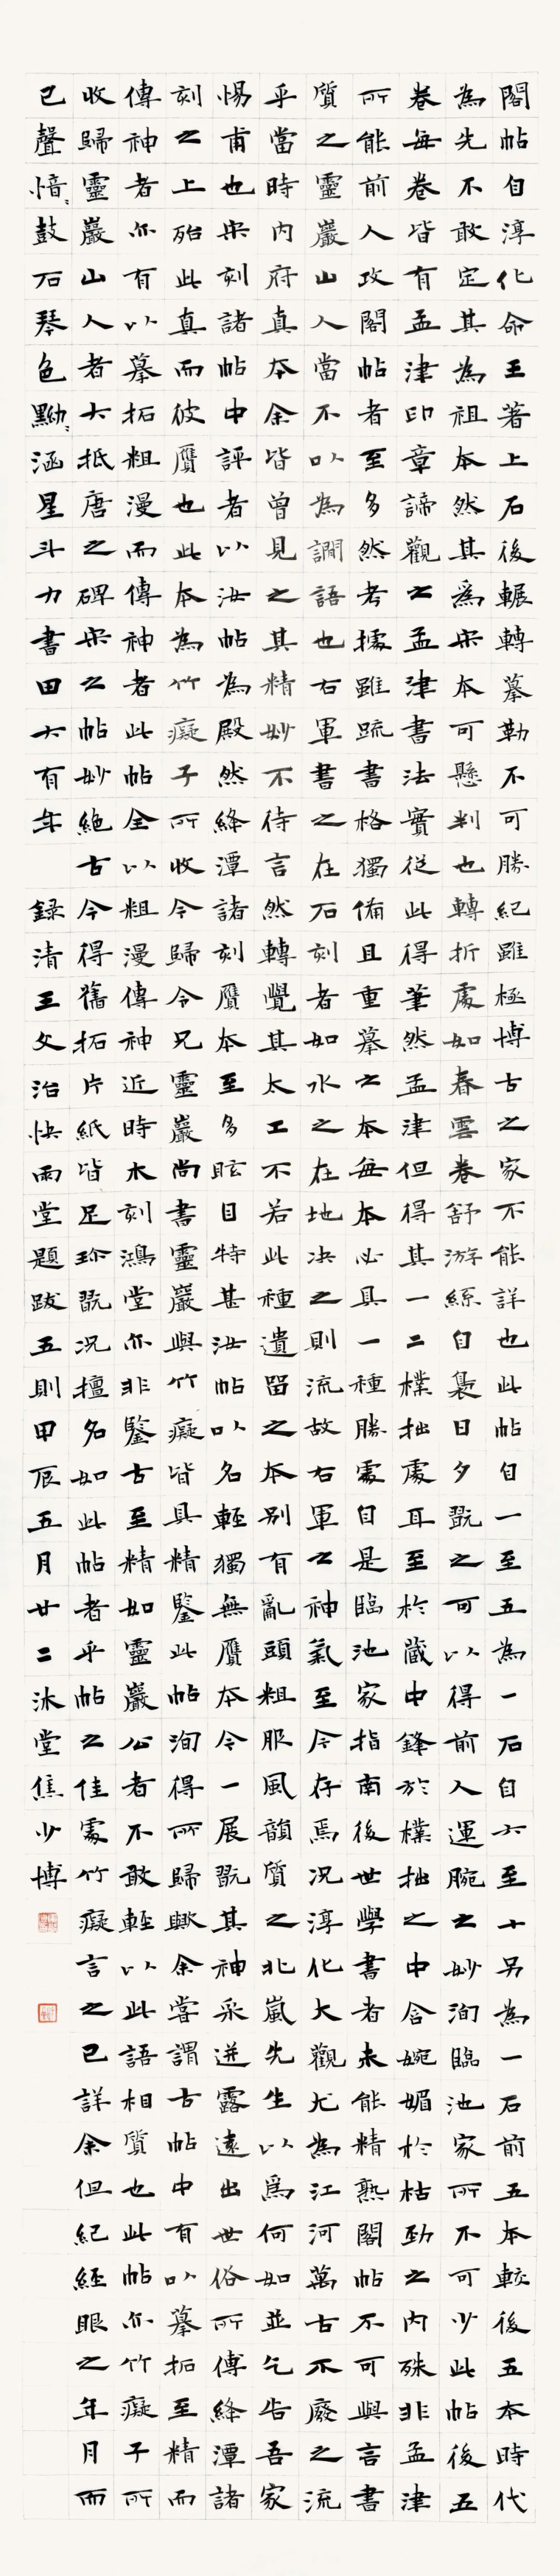 閣帖自淳化命王著上石後輾轉摹勒不可勝紀雖極博古之家不能詳也此帖自一至五為一石自六至十另為一石前五本較後五本時代
為先不敢定其為祖本然其為宋本可懸判也轉折處如春雲卷舒游絲自裊日夕翫之可以得前人運腕之妙洵臨池家所不可少此帖後五
卷每卷皆有孟津印章諦觀之孟津書法實從此得筆然孟津但得其一二樸拙處耳至於藏中鋒於樸拙之中含婉媚於枯勁之內殊非孟津
所能前人攷閣帖者至多然考據雖疏書格獨備且重摹之本每本必具一種勝處自是臨池家指南後世學書者未能精熟閣帖不可與言書
質之靈巖山人當不以為讕語也右軍書之在石刻者如水之在地決之則流故右軍之神氣至今存焉況淳化大觀尤為江河萬古不廢之流
乎當時內府真本余皆曾見之其精妙不待言然轉覺其太工不若此種遺留之本別有亂頭粗服風韻質之北嵐先生以為何如並乞告吾家
惕甫也宋刻諸帖中評者以汝帖為殿然絳潭諸刻贋本至多眩目特甚汝帖以名輕獨無贋本今一展翫其神采迸露遠出世俗所傳絳潭諸
刻之上殆此真而彼贋也此本為竹癡子所收今歸令兄靈巖尚書靈巖與竹癡皆具精鑒此帖洵得所歸歟余嘗謂古帖中有以摹拓至精而
傳神者亦有以摹拓粗漫而傳神者此帖全以粗漫傳神近時木刻鴻堂亦非鑒古至精如靈巖公者不敢輕以此語相質也此帖亦竹癡子所
收歸靈巖山人者大抵唐之碑宋之帖妙絕古今得舊拓片紙皆足珍翫況擅名如此帖者乎帖之佳處竹癡言之已詳余但紀經眼之年月而
已聲愔〻鼓石琴色黝〻涵星斗力書田大有年 録清王文治快雨堂題跋五則甲辰五月廿二沐堂焦少博